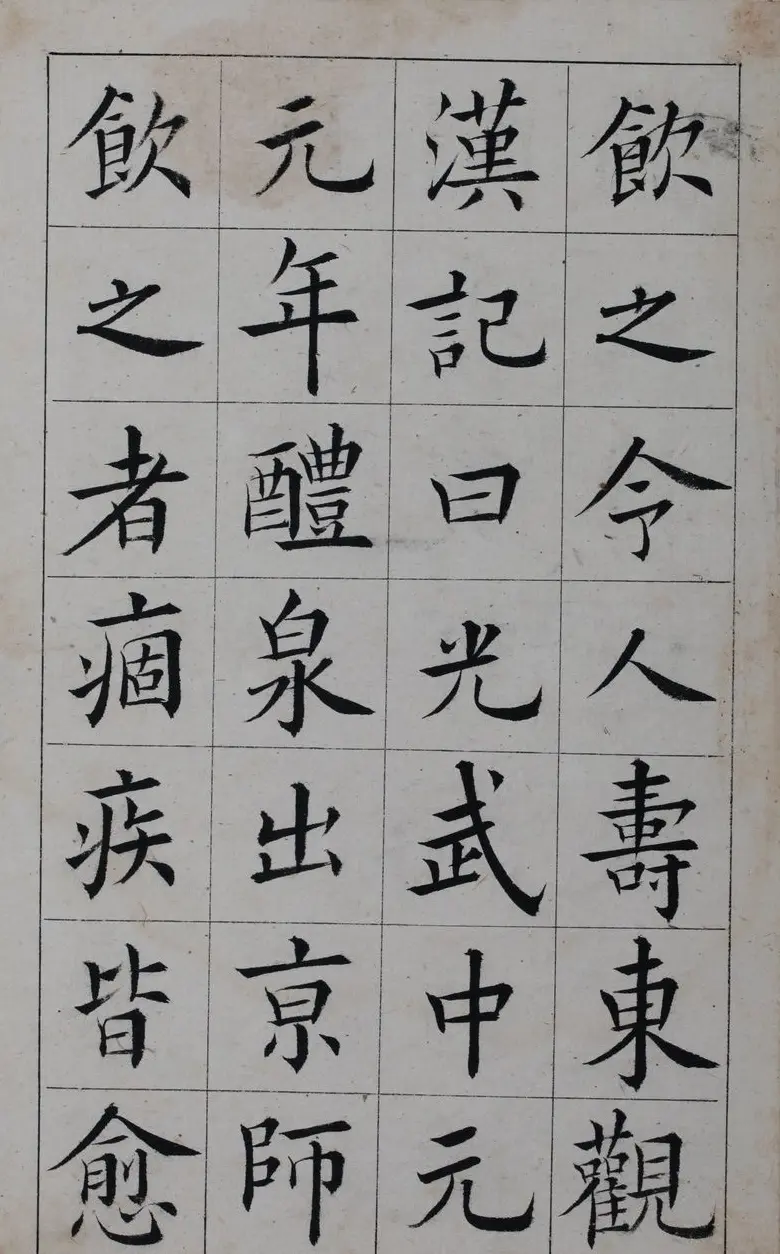 飲之令人壽東觀
漢記曰光武中元
元年醴泉出京師
飲之者痼疾皆愈